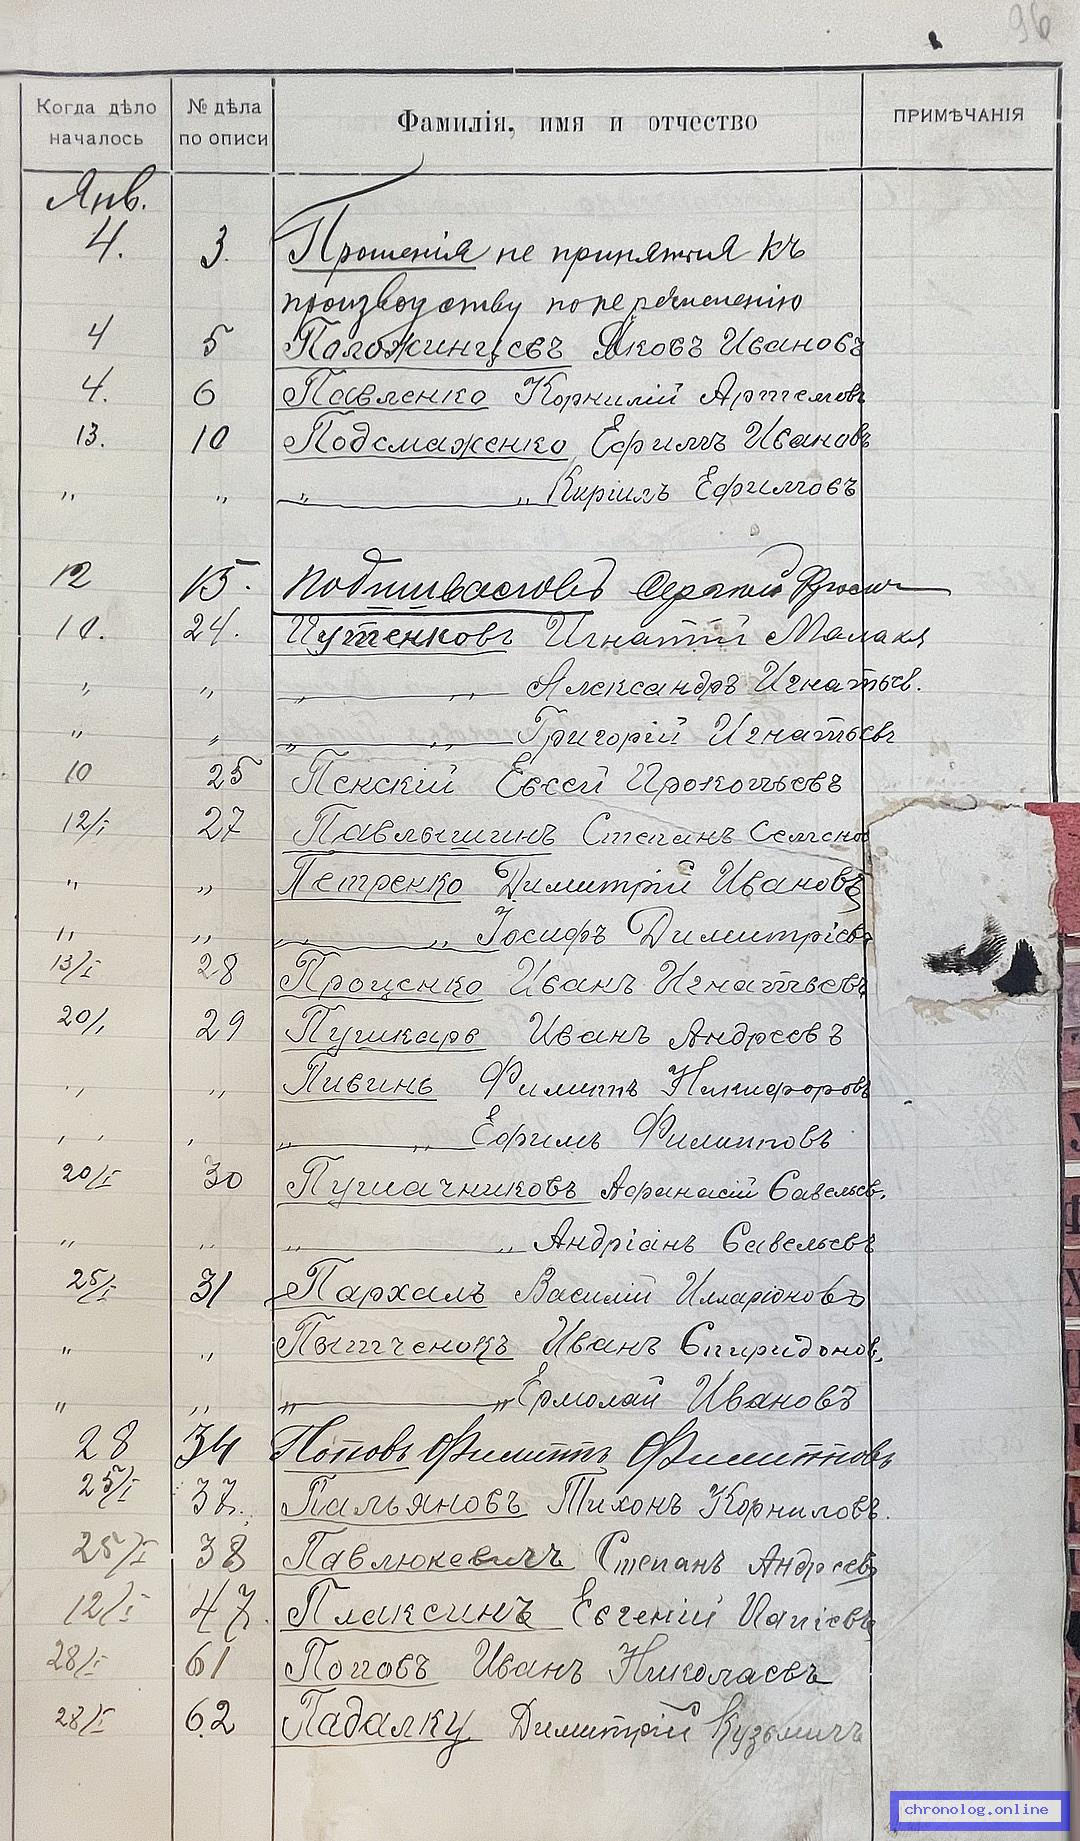 96
Когда дѣло началось № дѣла по описи Фамилія, имя и отчество ПРИМѢЧАНІЯ
Янв.
4. 3. Прошенія не принятыя къ
производству по
4 5 Паложинцевъ Яковъ Ивановъ
4. 6 Павленко Корнилій Артемовъ
13. 10 Подсмаженко Ефимъ Ивановъ
„ „ „ „ Кирилъ Ефимовъ
12 15. Подшиваловъ Сергѣй
10. 24. Путенковъ Игнатій Малахъ
„ „ „ „ Александръ Игнатьев.
„ „ „ „ Григорій Игнатьевъ
10 25 Пенскій Евсей Прокопьевъ
12/I 27 Павлышинъ Степанъ Семенов
„ „ Петренко Димитрій Ивановъ
„ „ „ „ Іосифъ Димитріев
13/I 28 Проценко Иванъ Игнатьевъ
20/I 29 Пушкарь Иванъ Андреевъ
„ „ Пивинь Филиппъ Никифоровъ
„ „ „ „ Ефимъ Филипповъ
20/I 30 Пугачниковъ Афанасій Савельев.
„ „ „ „ Андріанъ Савельевъ
25/I 31 Пархаль Василій Илларіоновъ
„ „ Пытченокъ Иванъ Спиридонов.
„ „ „ „ Ермолай Ивановъ
28 34 Поповъ Филиппъ Филипповъ
25/I 37. Пальяновъ Тихонъ Корниловъ.
25/I 38 Павлюкевичъ Степанъ Андреевъ
12/I 47. Плаксинъ Евгеній
28/I 61 Поповъ Иванъ Николаевъ
28/I 62 Падалку Димитрій Кузьмичъ
chronolog.online